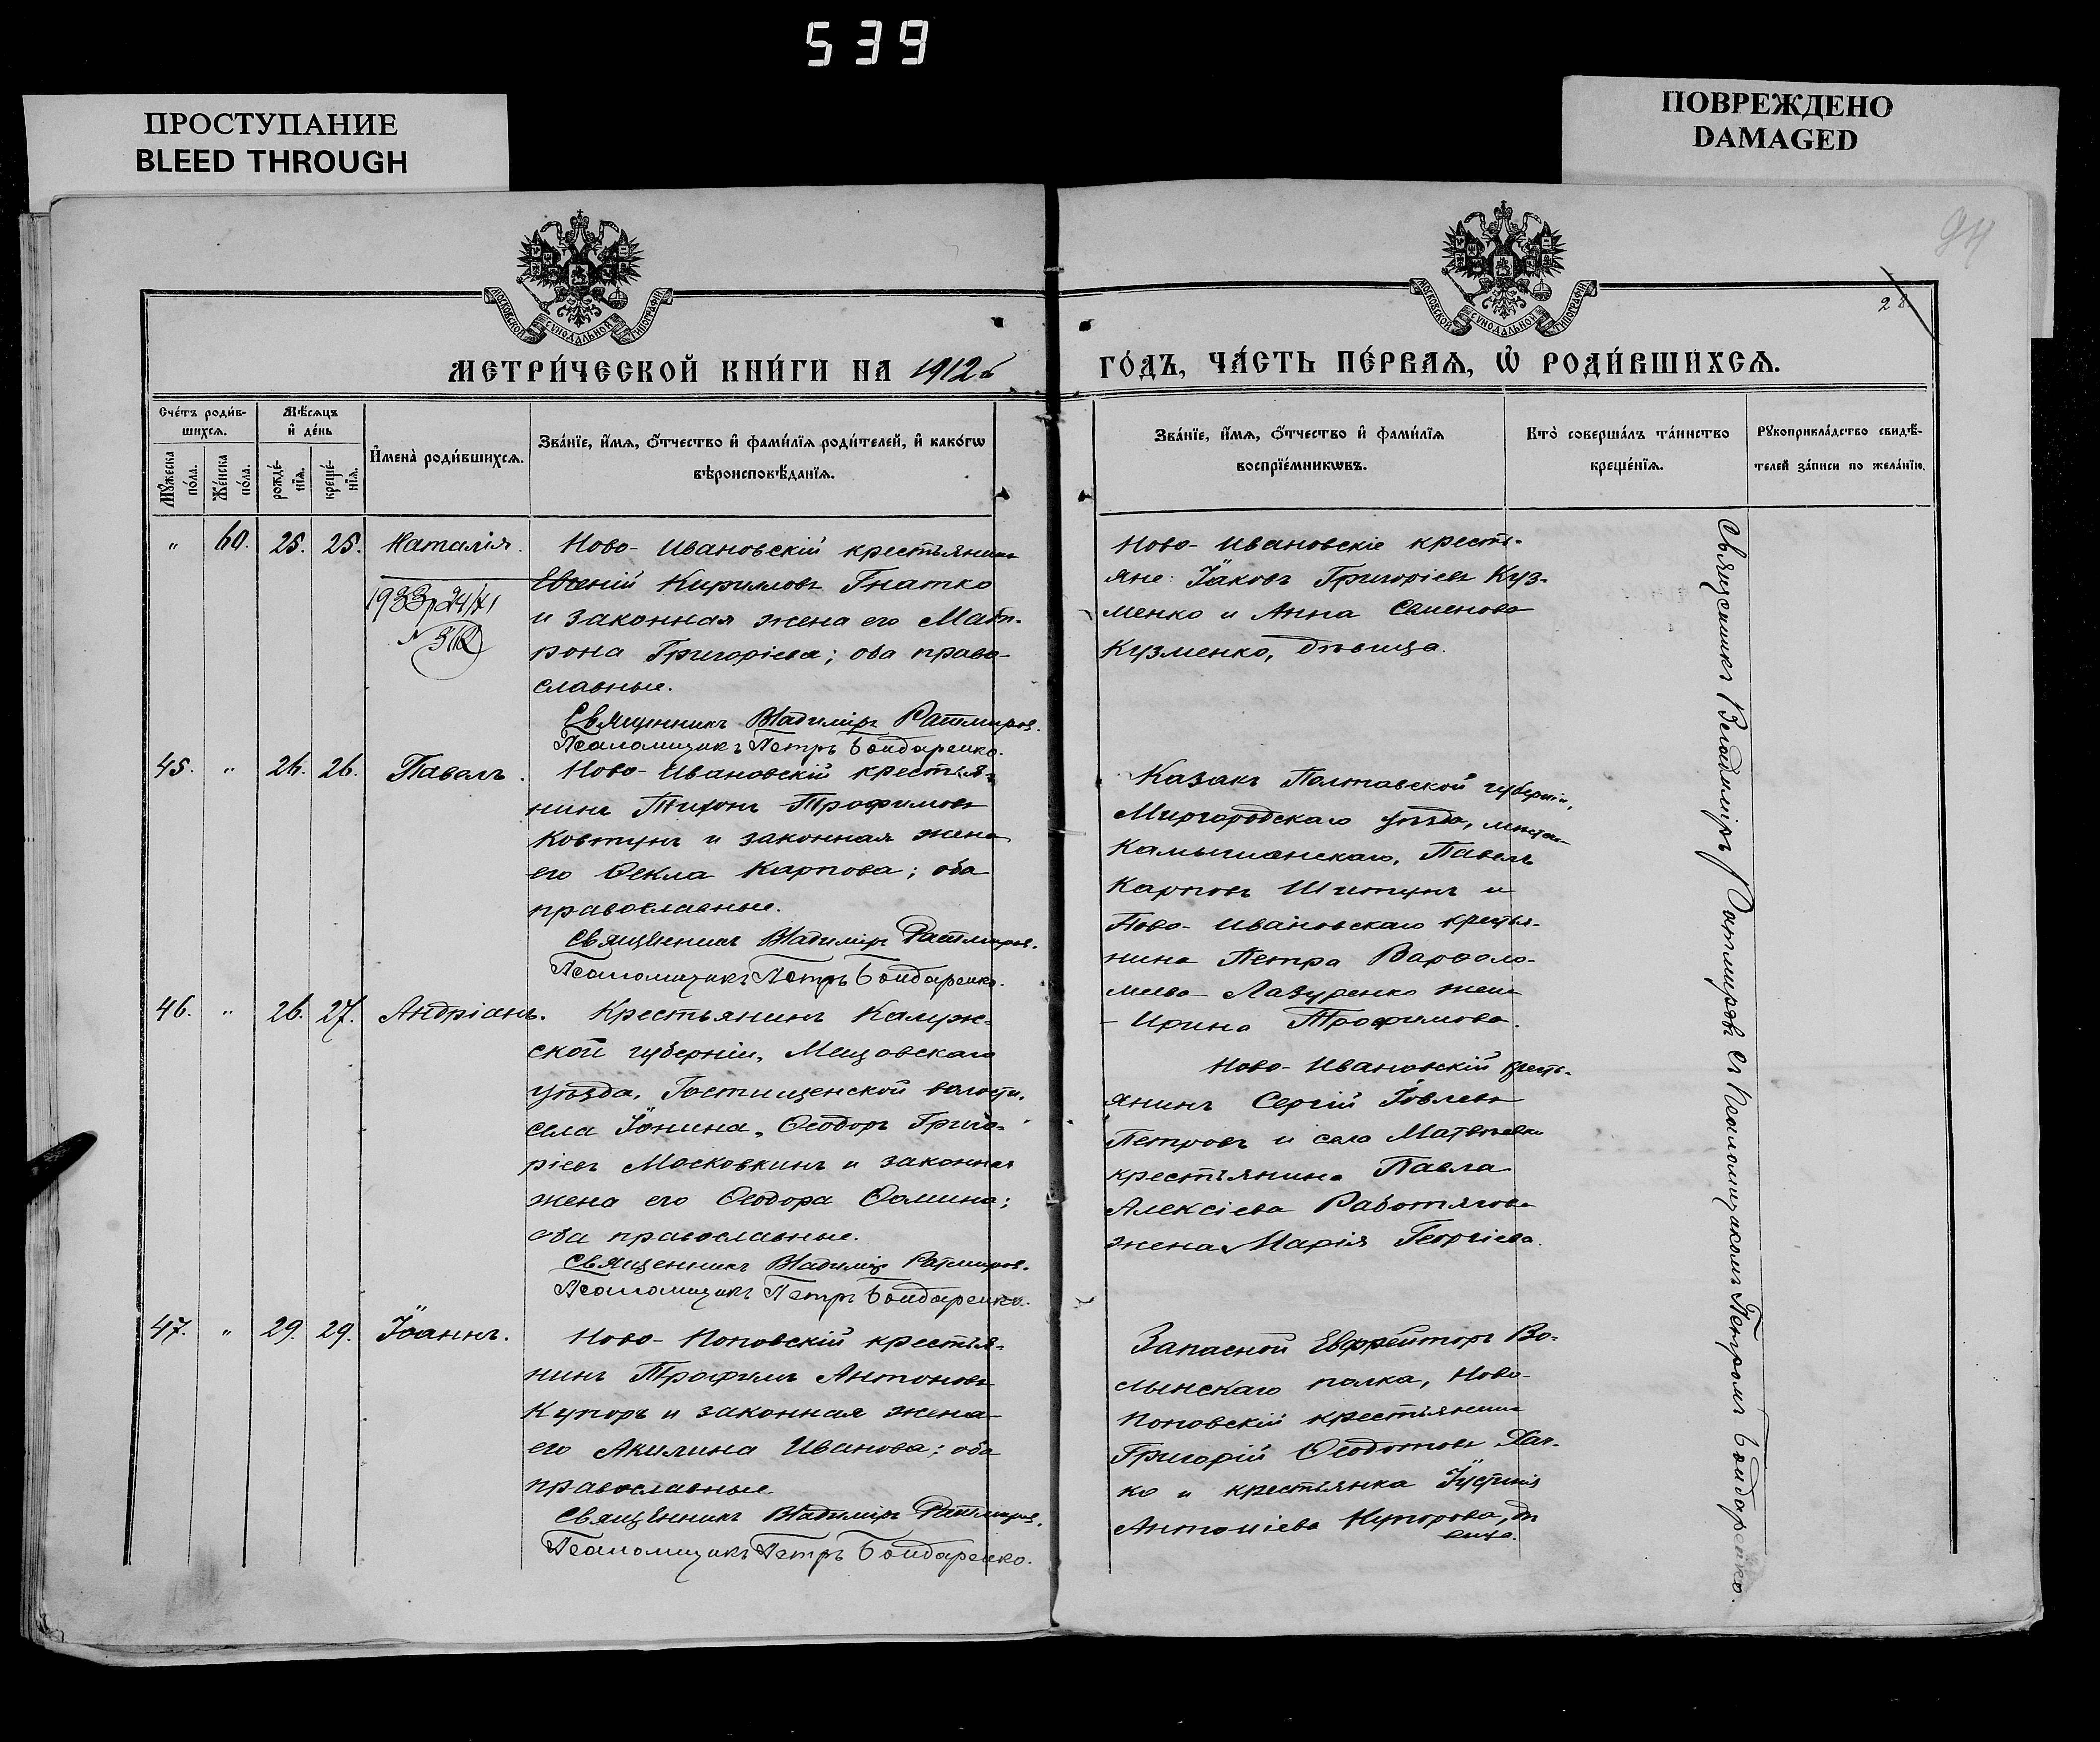 539
ПРОСТУПАНИЕ
BLEED THROUGH
ПОВРЕЖДЕНО
DAMAGED
94
28
МОСКОВСКОЙ СѴНОДАЛЬНОЙ ТИПОГРАФІИ
МОСКОВСКОЙ СѴНОДАЛЬНОЙ ТИПОГРАФІИ
МЕТРИ́ЧЕСКОЙ КНИ́ГИ НА 1912
ГО́ДЪ, ЧА́СТЬ ПЕ́РВАѦ, Ѿ РОДИ́ВШИХСѦ.
Сче́тъ роди́в-
шихсѧ.
Мꙋ́жеска
по́ла.
Же́нска
по́ла.
Мѣ́сѧцъ
и҆ де́нь
рожде́-
нїѧ.
креще́-
нїѧ.
И҆мена̀ роди́вшихсѧ.
Зва́нїе, и҆́мѧ, ѻ҆́тчество и҆ фами́лїѧ роди́телей, и҆ како́гѡ
вѣроисповѣ́данїѧ.
Зва́нїе, и҆́мѧ, ѻ҆́тчество и҆ фами́лїѧ
воспрїе́мникѡвъ.
Кто̀ соверша́лъ та́инство
креще́нїѧ.
Рꙋкоприкла́дство свидѣ́-
телей за́писи по жела́нїю.
" 60. 25. 25. Наталія.
1933р 24/VI
Ново-Ивановскій крестьянинъ
Евгеній Кирилловъ Гнатко
и законная жена его Мат-
рона Григоріева; оба право-
славные.
Священникъ Владиміръ Ратмировъ.
Псаломщикъ Петръ Бондаренко.
Ново-Ивановскіе кресть-
яне: Іаковъ Григоріевъ Куз-
менко и Анна Семенова
Кузменко, дѣвица.
45. " 26. 26. Павелъ.
Ново-Ивановскій крестья-
нинъ Тихонъ Трофимовъ
Ковтунъ и законная жена
его Ѳекла Карпова; оба
православные.
Священникъ Владиміръ Ратмировъ.
Псаломщикъ Петръ Бондаренко.
Казакъ Полтавской губерніи,
Миргородскаго уѣзда,
Камышанскаго, Павелъ
Карповъ Шипунъ и
Ново-Ивановскаго крестья-
нина Петра Варѳоло-
меева Лазуренко жена
Ирина Трофимова.
46. " 26. 27. Андріанъ.
Крестьянинъ Калуж-
ской губерніи, Мещовскаго
уѣзда, Гостищенской волости,
села Іонина, Ѳеодоръ Григо-
ріевъ Московкинъ и законная
жена его Ѳеодора Ѳомина;
оба православные.
Священникъ Владиміръ Ратмировъ.
Псаломщикъ Петръ Бондаренко.
Ново-Ивановскій кресть-
янинъ Сергій Іовлевъ
Петровъ и села Матвѣевки
крестьянина Павла
Алексіева Работягова
жена Марія Георгіева.
47. " 29. 29. Іоаннъ.
Ново-Поповскій крестья-
нинъ Трофимъ Антоновъ
Купоръ и законная жена
его Акилина Иванова; оба
православные.
Священникъ Владиміръ Ратмировъ.
Псаломщикъ Петръ Бондаренко.
Запасной Ефрейторъ Во-
лынскаго полка, Ново-
Поповскій крестьянинъ
Григорій Ѳеодотовъ
ко и крестьянка Іустинія
Антоніева Купорова, дѣ
вица.
Священникъ Владиміръ Ратмировъ съ Псаломщикомъ Петромъ Бондаренко.